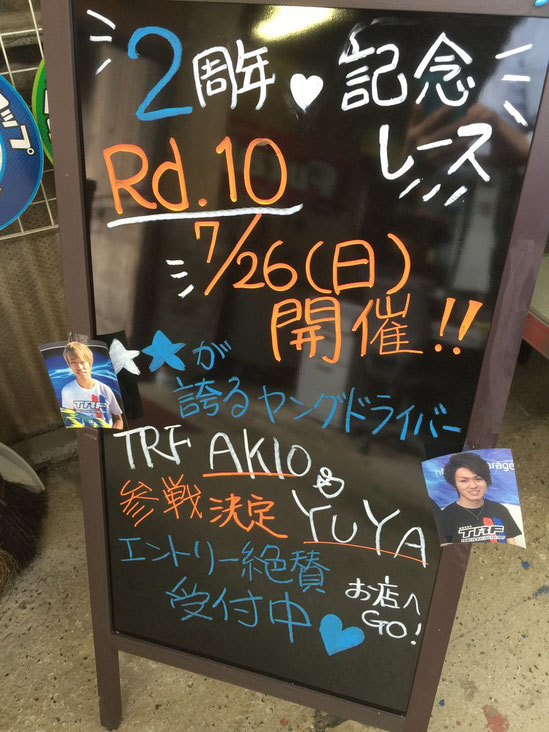 2周年♥記念
レース
Rd.10
7/26(日)
開催!!
★★が
誇るヤングドライバー
TRF AKIO &
参戦決定 YUYA
エントリー絶賛
受付中♥
お店へ
GO!
TRF
TRF
ップ